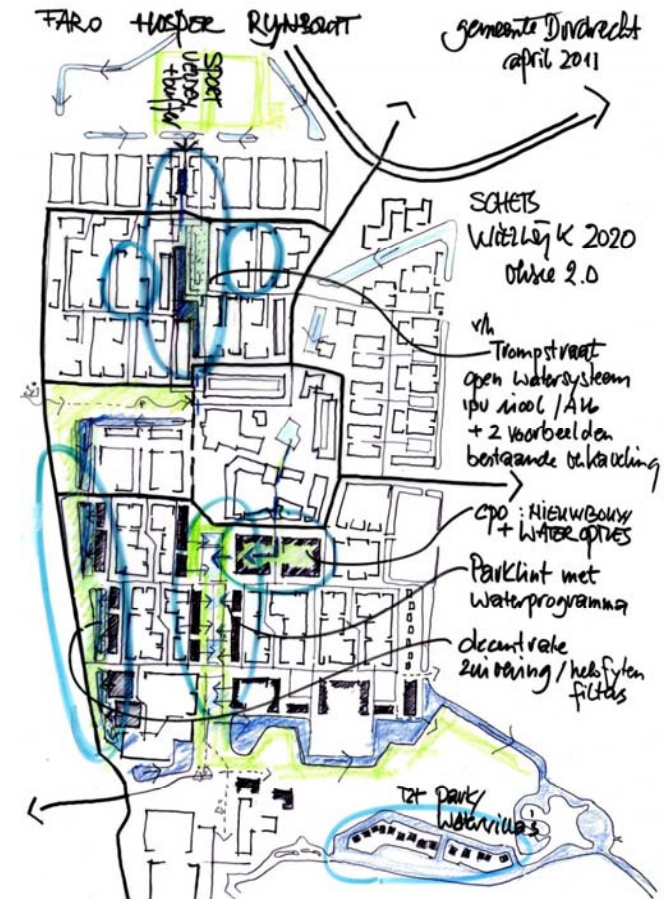 FARO HOSPER RIJNBOUTT
gemeente Dordrecht
april 2011
SPORT
+ buffer
SCHETS
WIELWIJK 2020
visie 2.0
v/h
Trompstraat
open watersysteem
ipv riool / AH
+ 2 voorbeelden
bestaande verkaveling
CPO : NIEUWBOUW
+ WATEROPTIES
Parklint met
waterprogramma
decentrale
zuivering / helofyten
filters
tzt park/
watervilla's